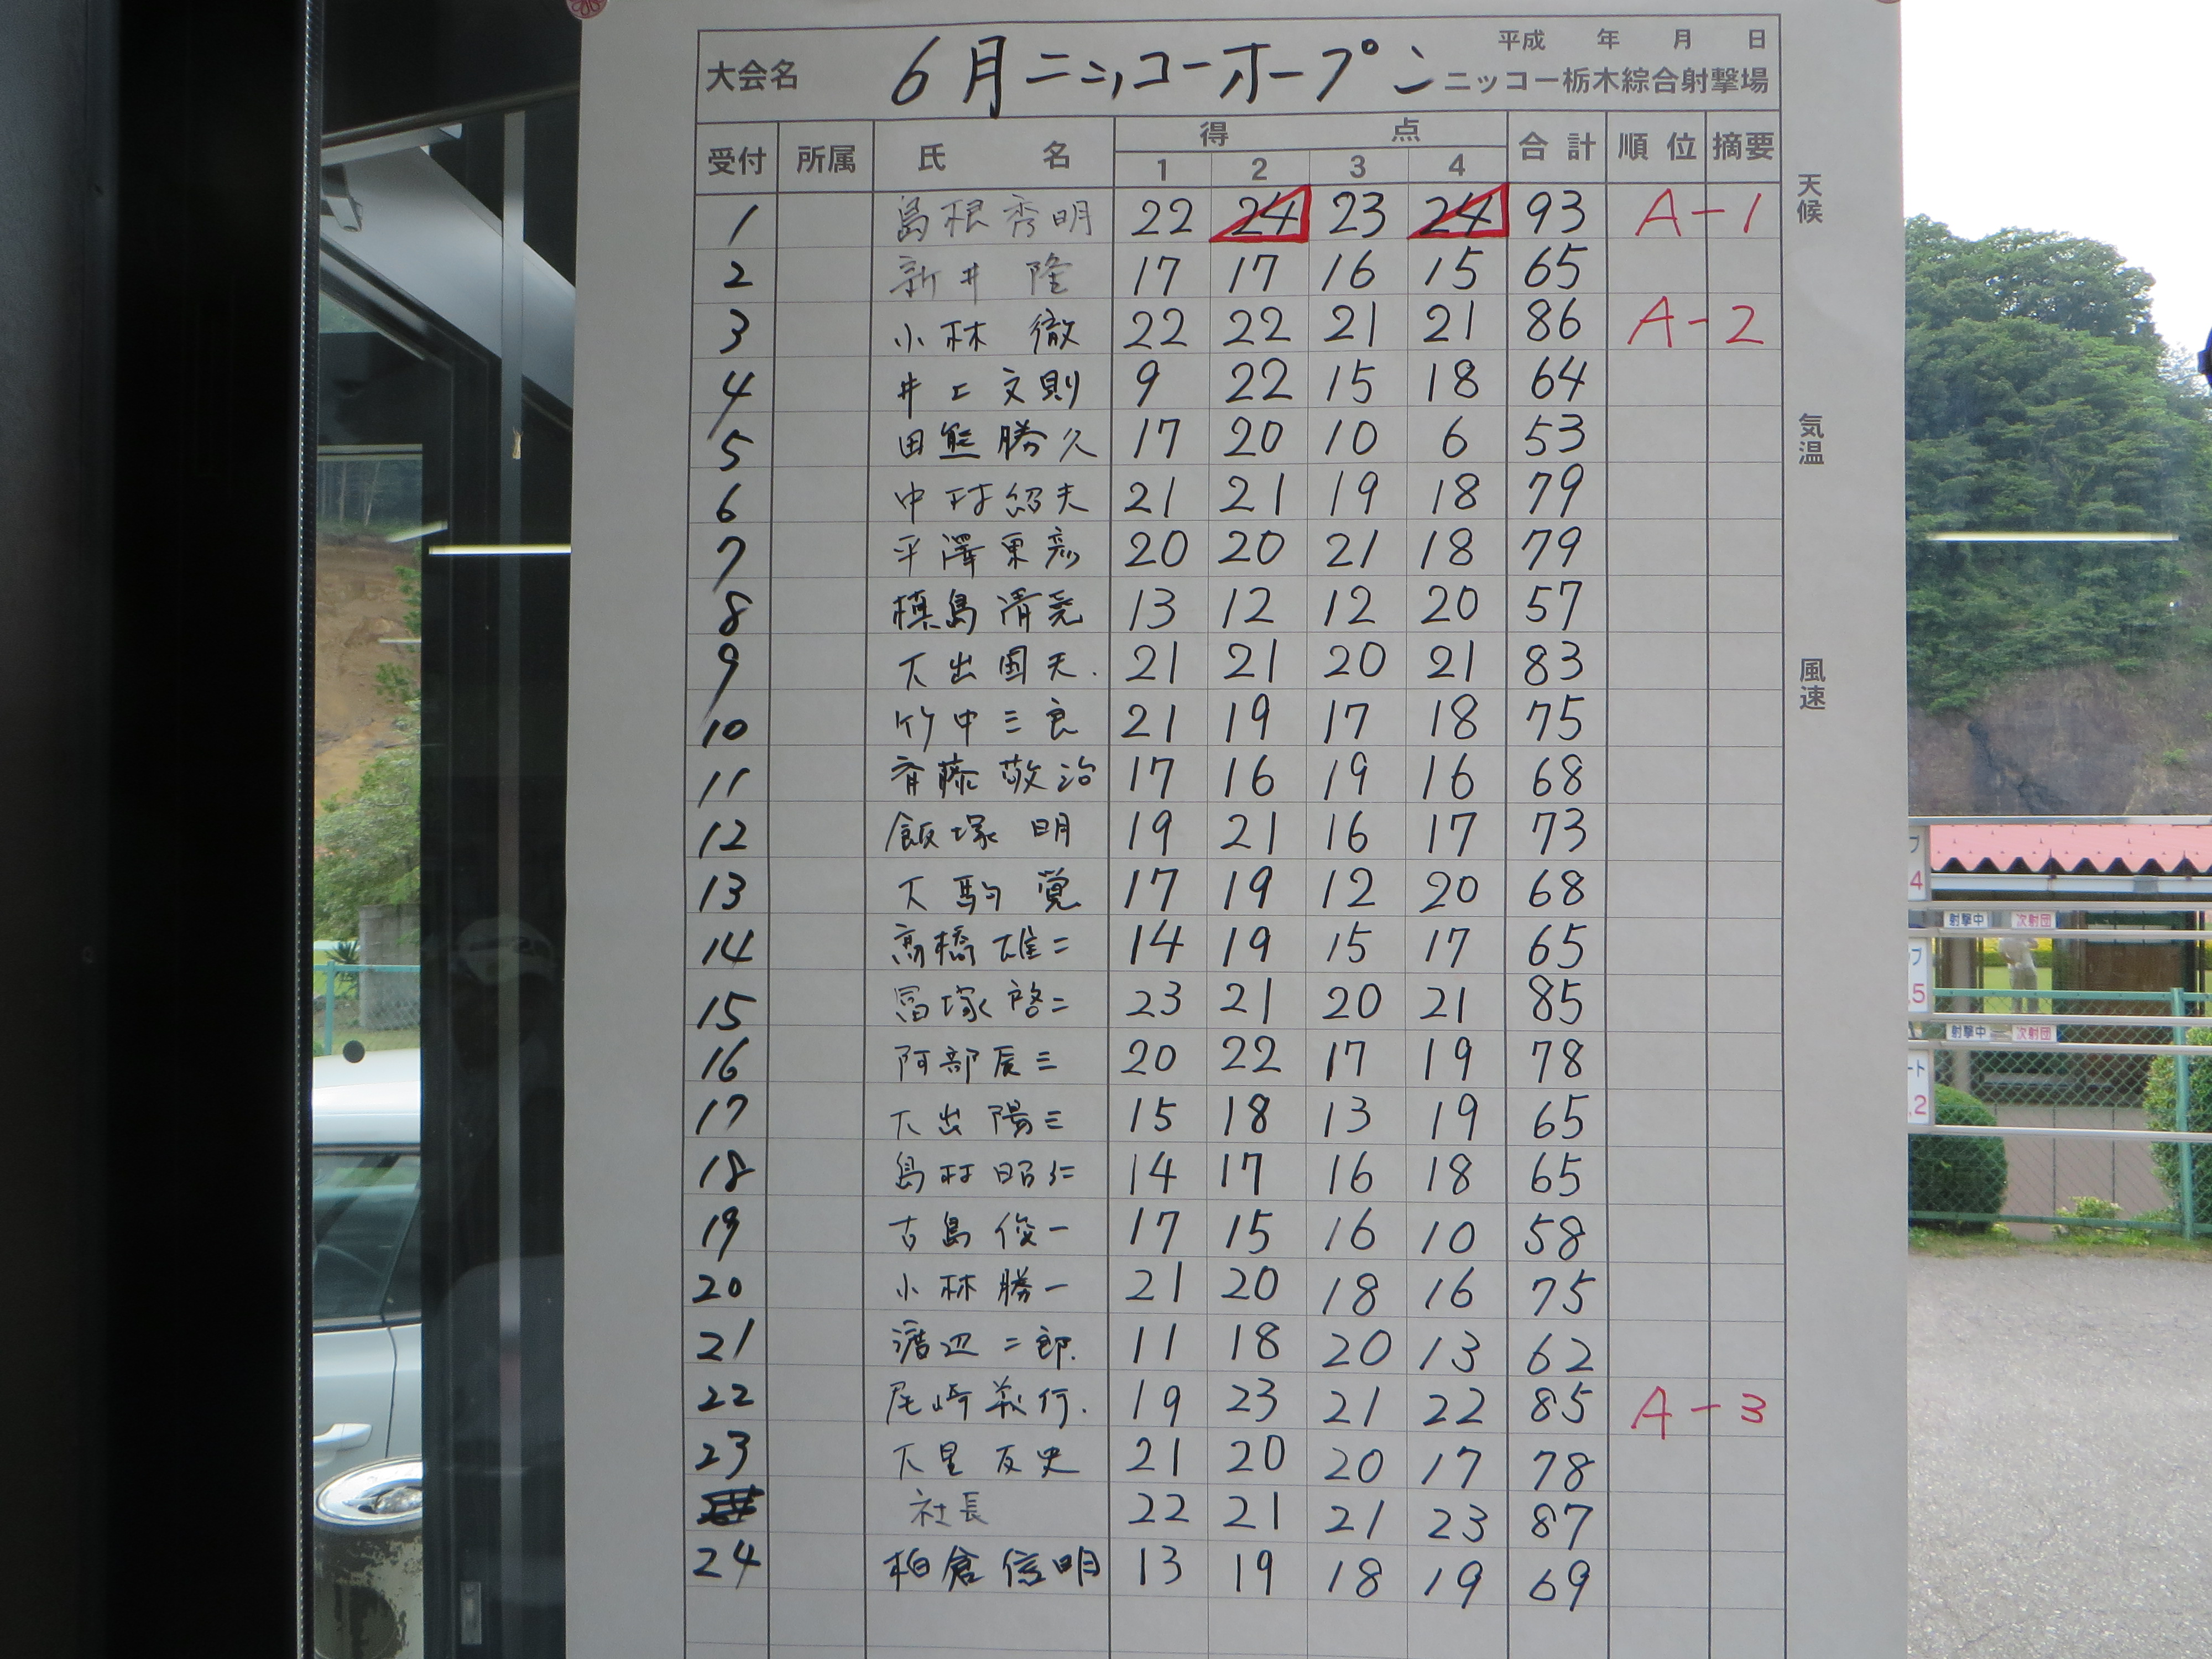 平成 年 月 日
大会名 6月ニッコーオープン ニッコー栃木綜合射撃場
受付 所属 氏 名 得 点 合計 順位 摘要
1 2 3 4
1 島根秀明 22 24 23 24 93 A-1
2 新井 隆 17 17 16 15 65
3 小林 徹 22 22 21 21 86 A-2
4 井上文則 9 22 15 18 64
5 田熊勝久 17 20 10 6 53
6 中村紹夫 21 21 19 18 79
7 平澤東彦 20 20 21 18 79
8 槙島清堯 13 12 12 20 57
9 大出国夫. 21 21 20 21 83
10 竹中三良 21 19 17 18 75
11 斉藤敬治 17 16 19 16 68
12 飯塚 明 19 21 16 17 73
13 大駒 覚 17 19 12 20 68
14 高橋雄二 14 19 15 17 65
15 冨塚啓二 23 21 20 21 85
16 阿部辰三 20 22 17 19 78
17 大出陽三 15 18 13 19 65
18 島村昭仁 14 17 16 18 65
19 古島俊一 17 15 16 10 58
20 小林勝一 21 20 18 16 75
21 渡辺二郎. 11 18 20 13 62
22 尾崎義行. 19 23 21 22 85 A-3
23 大里友史 21 20 20 17 78
社長 22 21 21 23 87
24 柏倉信明 13 19 18 19 69
天候
気温
風速
プ
4
射撃中 次射団
プ
.5
射撃中 次射団
ート
.2